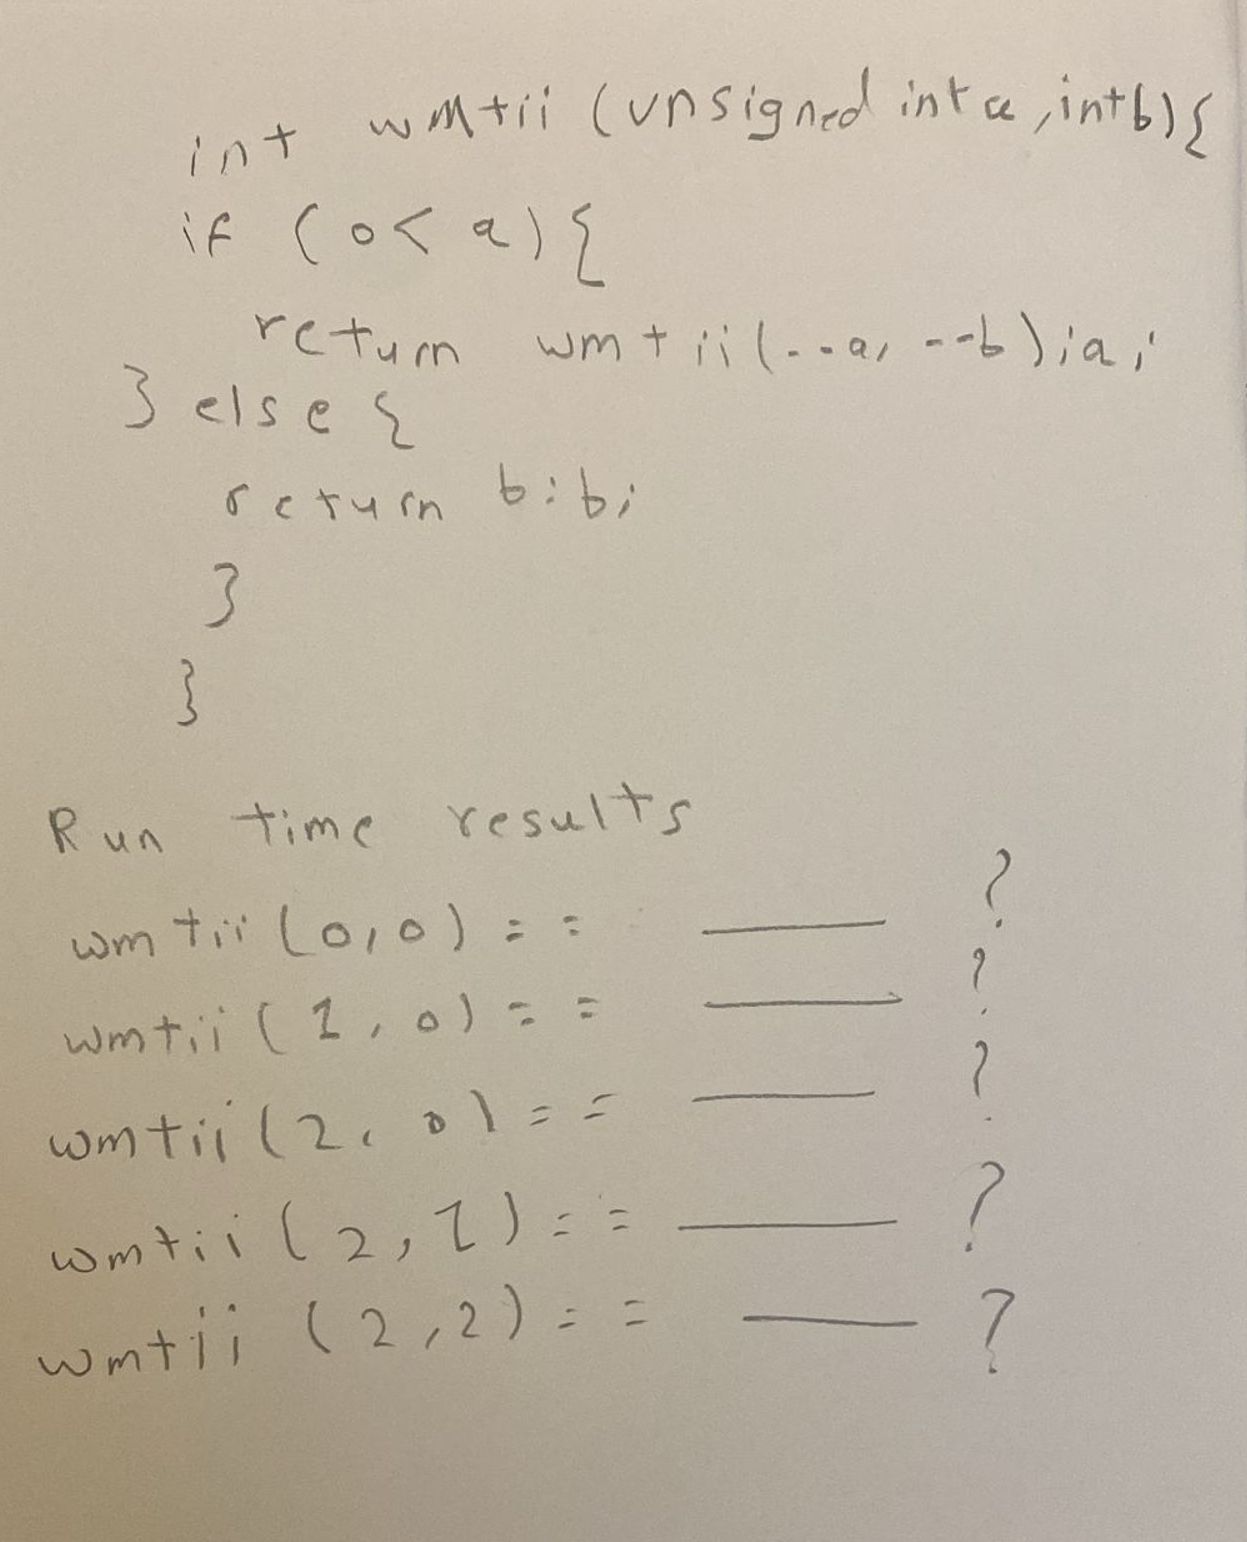 int wmtii (unsigned int a, int b) {
if (0 < a) {
return wmtii(--a, --b) ; a ;
} else {
return b : b ;
}
}
Run time results
wmtii (0,0) == ____ ?
wmtii (1, 0) == ____ ?
wmtii (2, 0) == ____ ?
wmtii (2, 1) == ____ ?
wmtii (2,2) == ____ ?